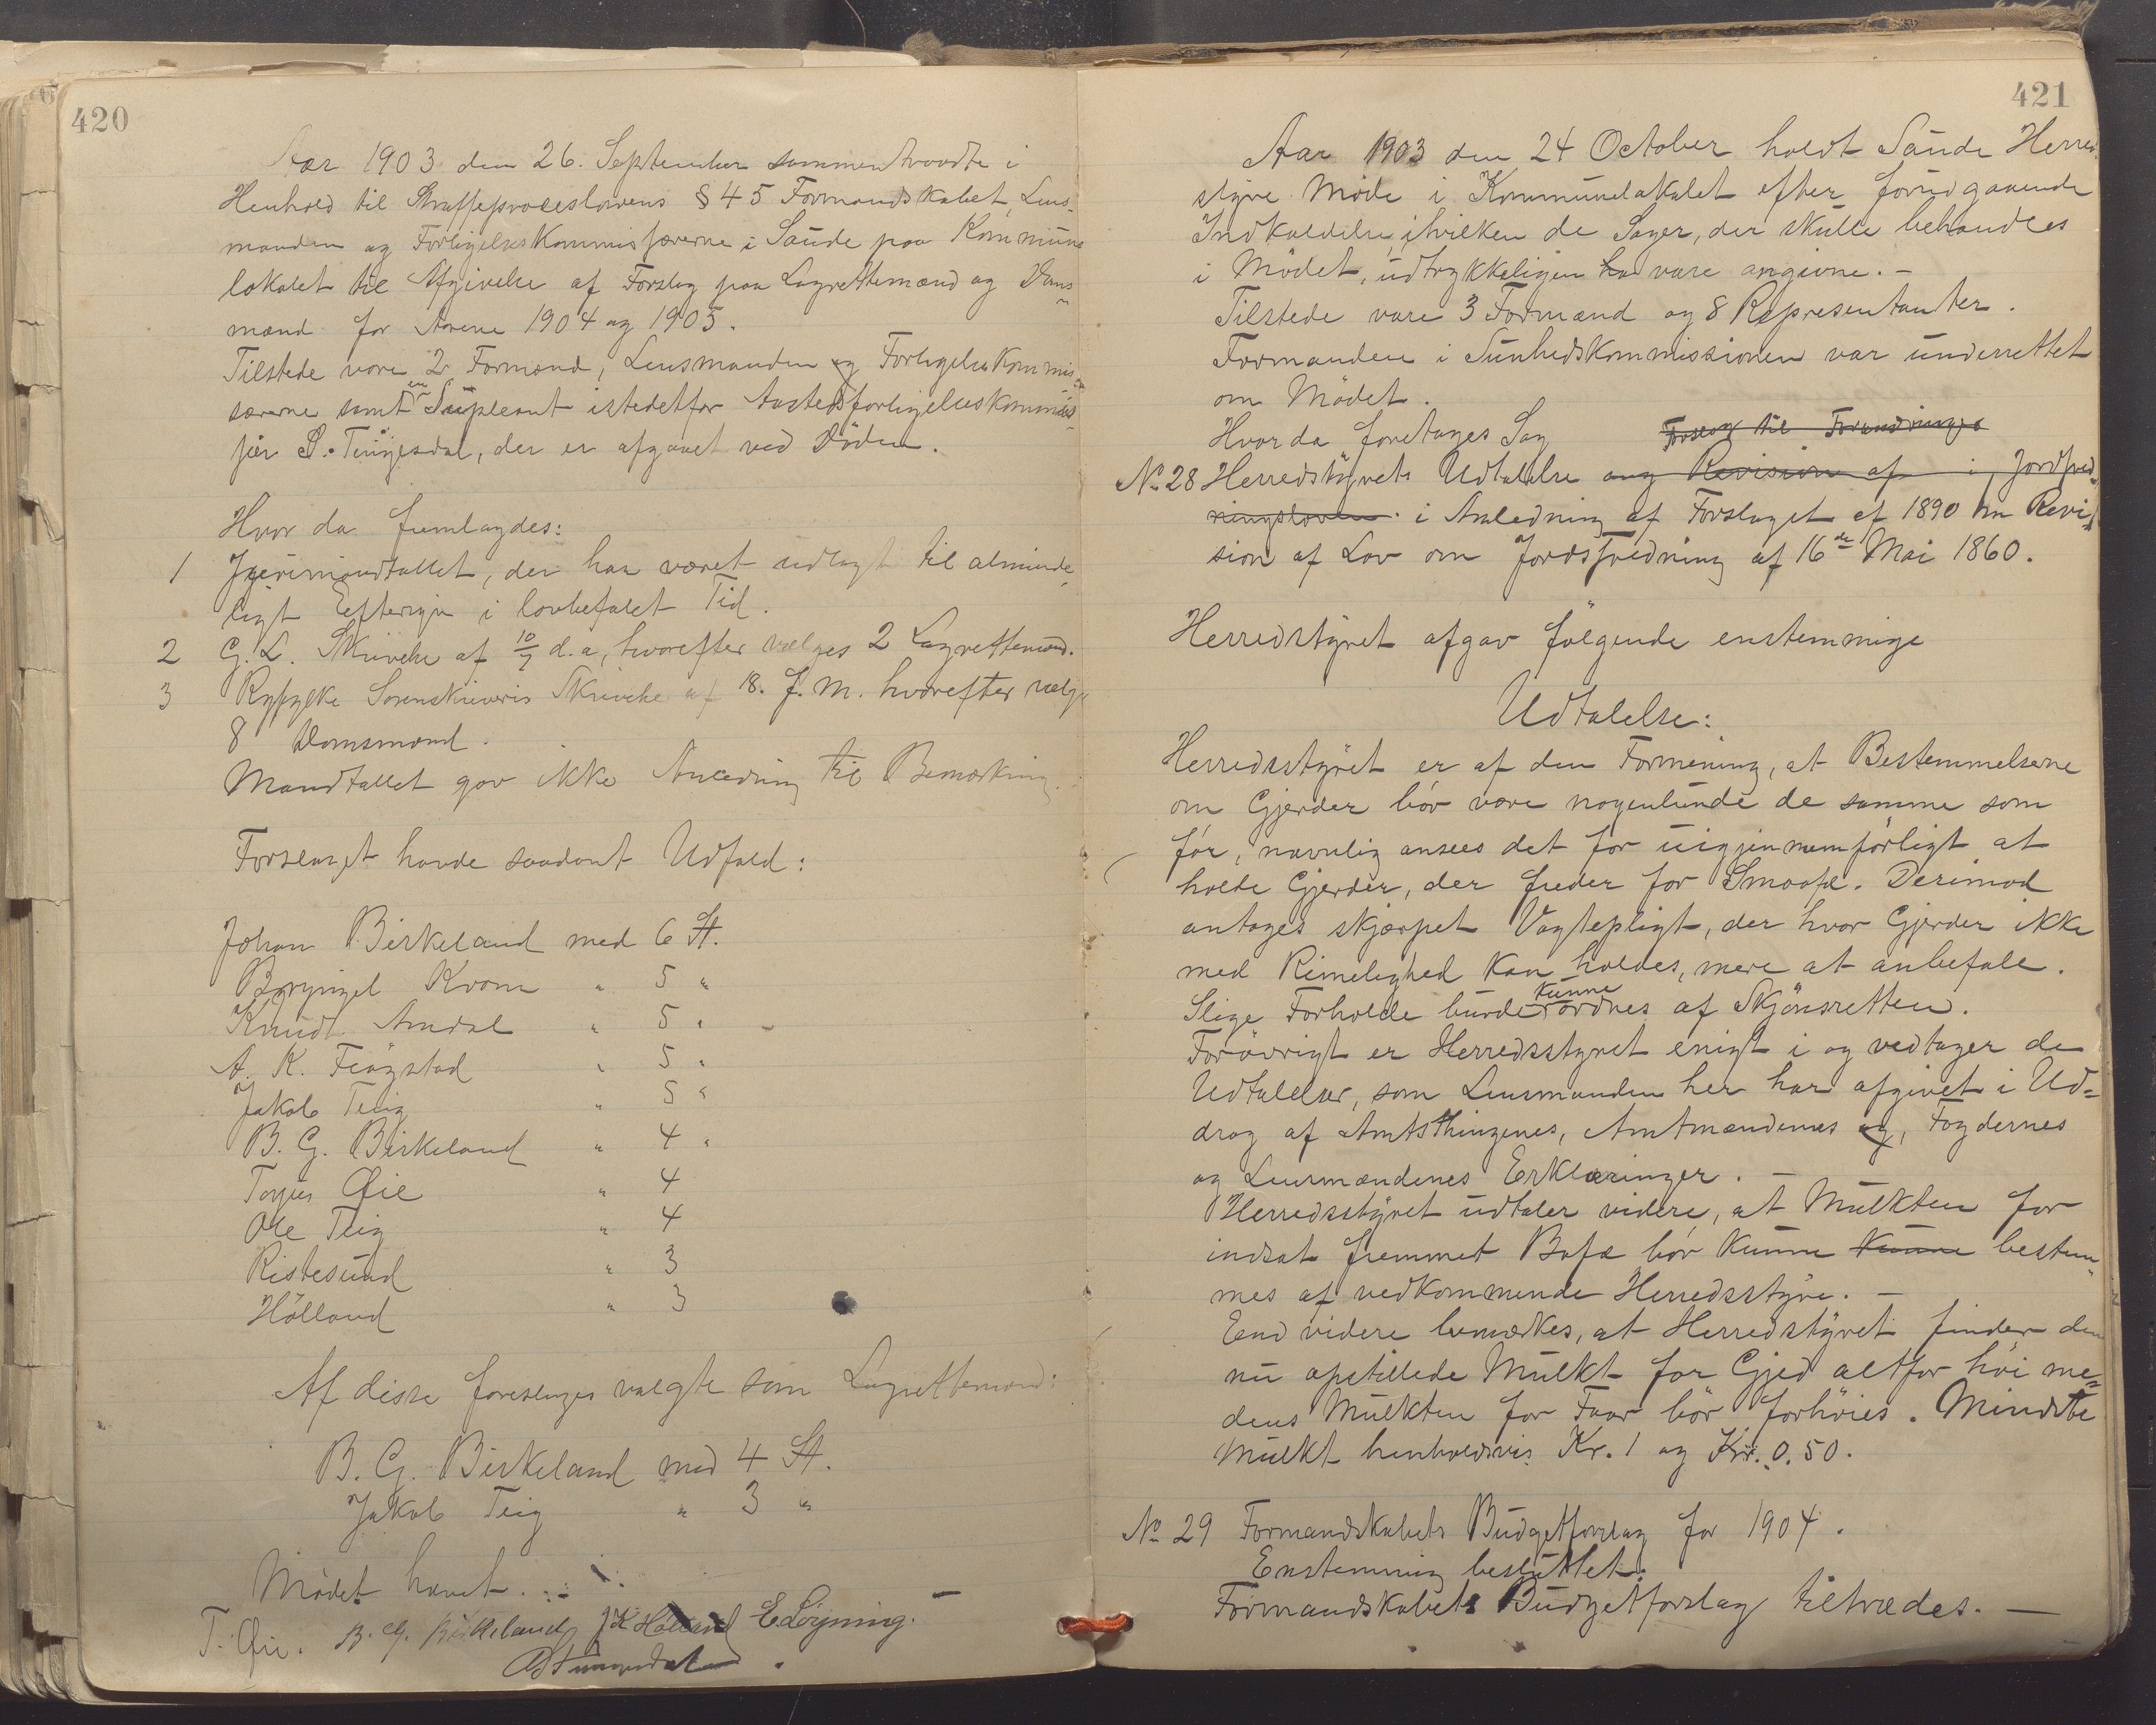 420
Aar 1903 den 26. September sammentraadte i
Henhold til Straffeproceslovens § 45 Formandskabet, Lens-
manden og Forligelseskommissærerne i Saude paa Kommune
lokalet til Afgivelse af Forslag paa Lagrettemænd og Doms-
mænd for Aarene 1904 og 1905.
Tilstede vare 2 Formænd, Lensmanden og Forligelseskommis-
særerne samt en Supleant istedetfor Aastedsforligelseskommis-
sær S. Tengesdal, der er afgaaet ved Döden.
Hvor da fremlagdes:
1 Jurimandtallet, der har været udlagt til alminde-
ligt Eftersyn i lovbefalet Tid.
2 G. L. Skrivelse af 10/7 d. a, hvorefter vælges 2 Lagrettemænd.
3 Ryfylke Sorenskriveris Skrivelse af 18. f. M. hvorefter vælges
8 Domsmænd.
Mandtallet gav ikke Anledning til Bemærkning.
Forslaget havde saadant Udfald:
Johan Birkeland med 6 St.
Brynjel Kvam " 5 "
Knudt Amdal " 5 "
A. K. Fiögstad " 5 "
Jakob Teig " 5 "
B. G. Birkeland " 4 "
Torjus Øie " 4
Ole Teig " 4
Ristesund " 3
Hölland " 3
Af disse foreslaages valgte som Lagrettemænd:
B. G. Birkeland med 4 St.
Jakob Teig " 3 "
Mödet hævet.
T. Øie. B. G. Birkeland J K Hölland E Löyning.
421
Aar 1903 den 24 October holdt Saude Herreds-
styre Möde i Kommunelokalet efter forudgaaende
Indkaldelse, i hvilken de Sager, der skulle behandles
i Mödet, udtrykkeligen ha vare angivne. -
Tilstede vare 3 Formænd og 8 Repræsentanter.
Formanden i Sunhedskommissionen var underrettet
om Mödet.
Hvor da foretages Sag Forslag til Forandringer
No 28 Herredstyrets Udtalelse ang Revision af i Jordfred-
ningsloven. i Anledning af Forslaget af 1890 om Revi-
sion af Lov om Jords Fredning af 16de Mai 1860.
Herredstyret afgav fölgende enstemmige
Udtalelse:
Herredsstyret er af den Formening, at Bestemmelserne
om Gjerder bör være nogenlunde de samme som
för, navnlig ansees det for uigjennemförligt at
holde Gjerder, der freder for Smaafæ. Derimod
antages skjærpet Vogtepligt, der hvor Gjerder ikke
med Rimelighed kan holdes, mere at anbefale.
Slige Forholde burde kunne ordnes af Skjönsretten.
Forövrigt er Herredsstyret enigt i og vedtager de
Udtalelser, som Lensmanden her har afgivet i Ud-
drag af Amtsthingenes, Amtmændenes og, Fogdernes
og Lensmændenes Erklæringer. -
Herredsstyret udtaler videre, at Mulkten for
indsat fremmet Bufæ bör kunne kunne bestem-
mes af vedkommende Herredsstyre. -
End videre bemærkes, at Herredstyret finder den
nu opstillede Mulkt for Gjed altfor höi me-
dens Mulkten for Faar bör forhöies. Mindste
Mulkt henholdsvis Kr. 1 og Kr. 0.50.
No 29 Formandskabets Budgetforslag for 1904.
Enstemmig besluttet:
Formandskabets Budgetforslag tiltrædes. -